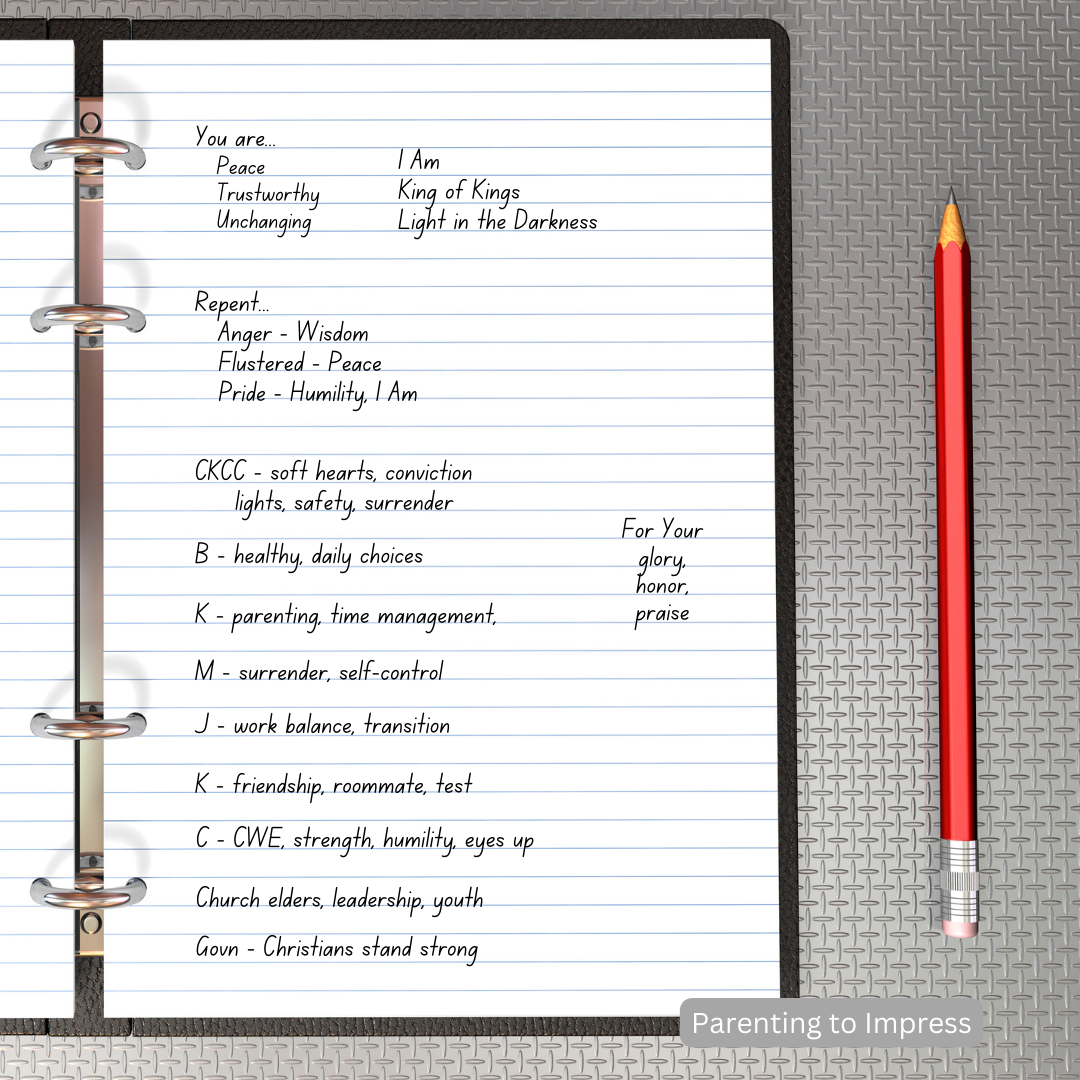 You are...
Peace
Trustworthy
Unchanging
I Am
King of Kings
Light in the Darkness
Repent...
Anger - Wisdom
Flustered - Peace
Pride - Humility, I Am
CKCC - soft hearts, conviction
lights, safety, surrender
B - healthy, daily choices
K - parenting, time management,
M - surrender, self-control
J - work balance, transition
K - friendship, roommate, test
C - CWE, strength, humility, eyes up
Church elders, leadership, youth
Govn - Christians stand strong
For Your
glory,
honor,
praise
Parenting to Impress